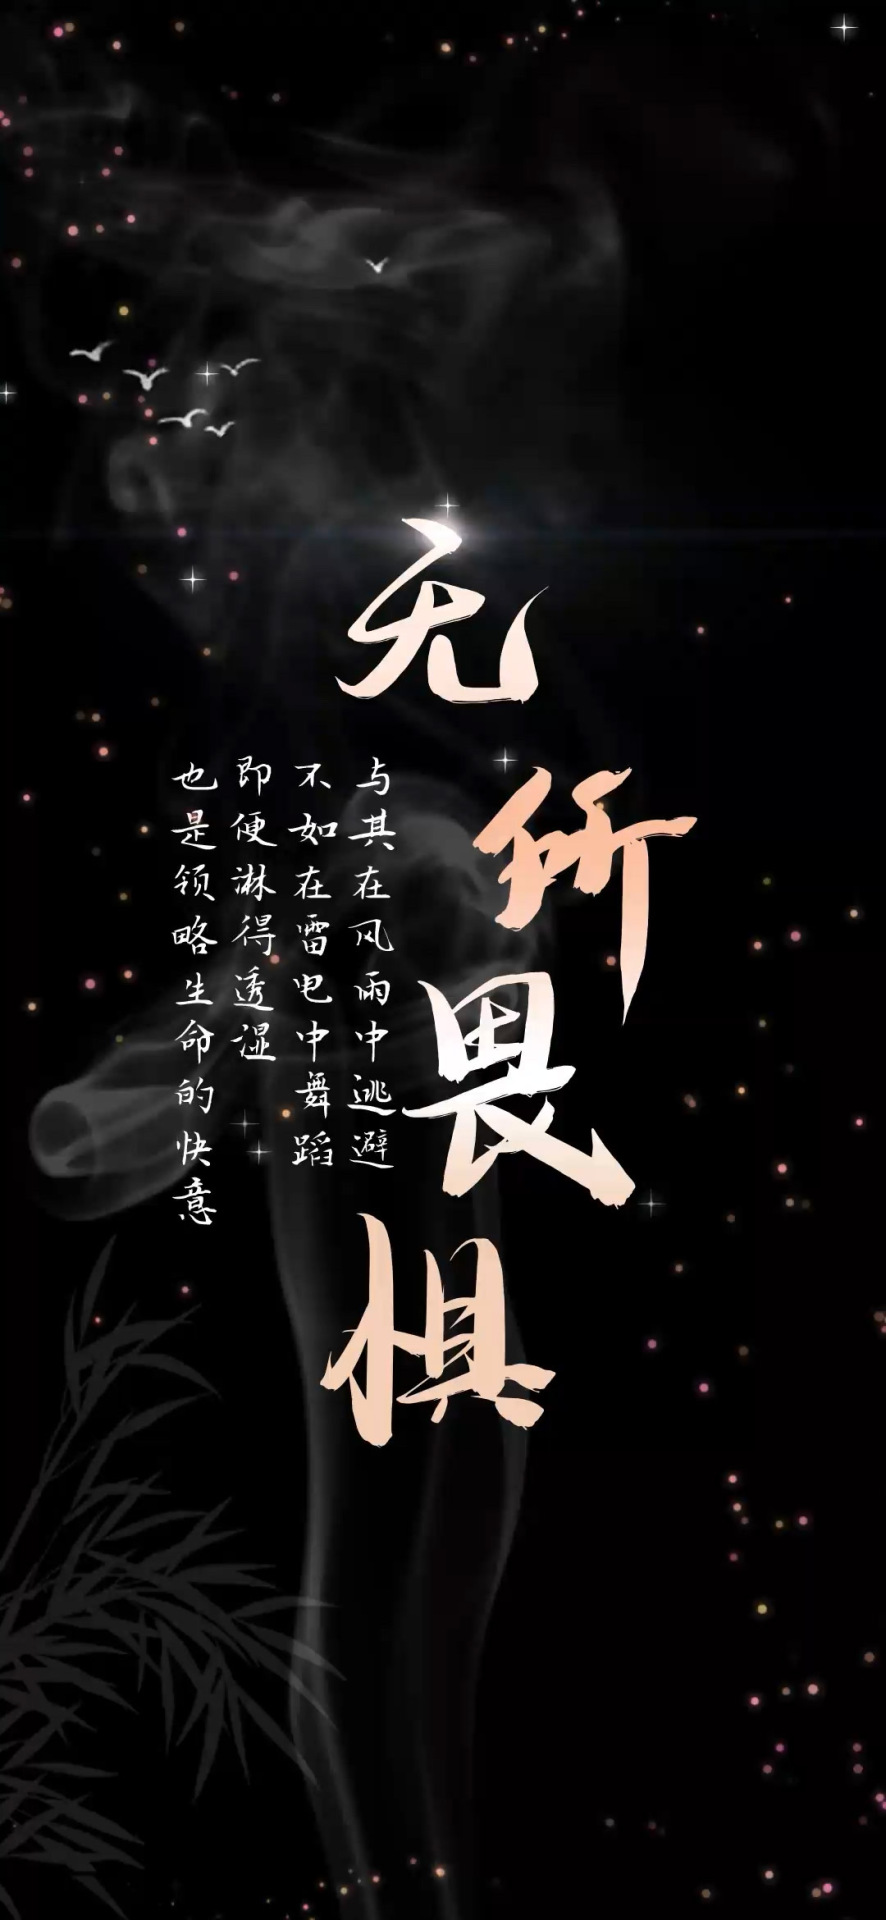 无所畏惧
与其在风雨中逃避
不如在雷电中舞蹈
即便淋得透湿
也是领略生命的快意